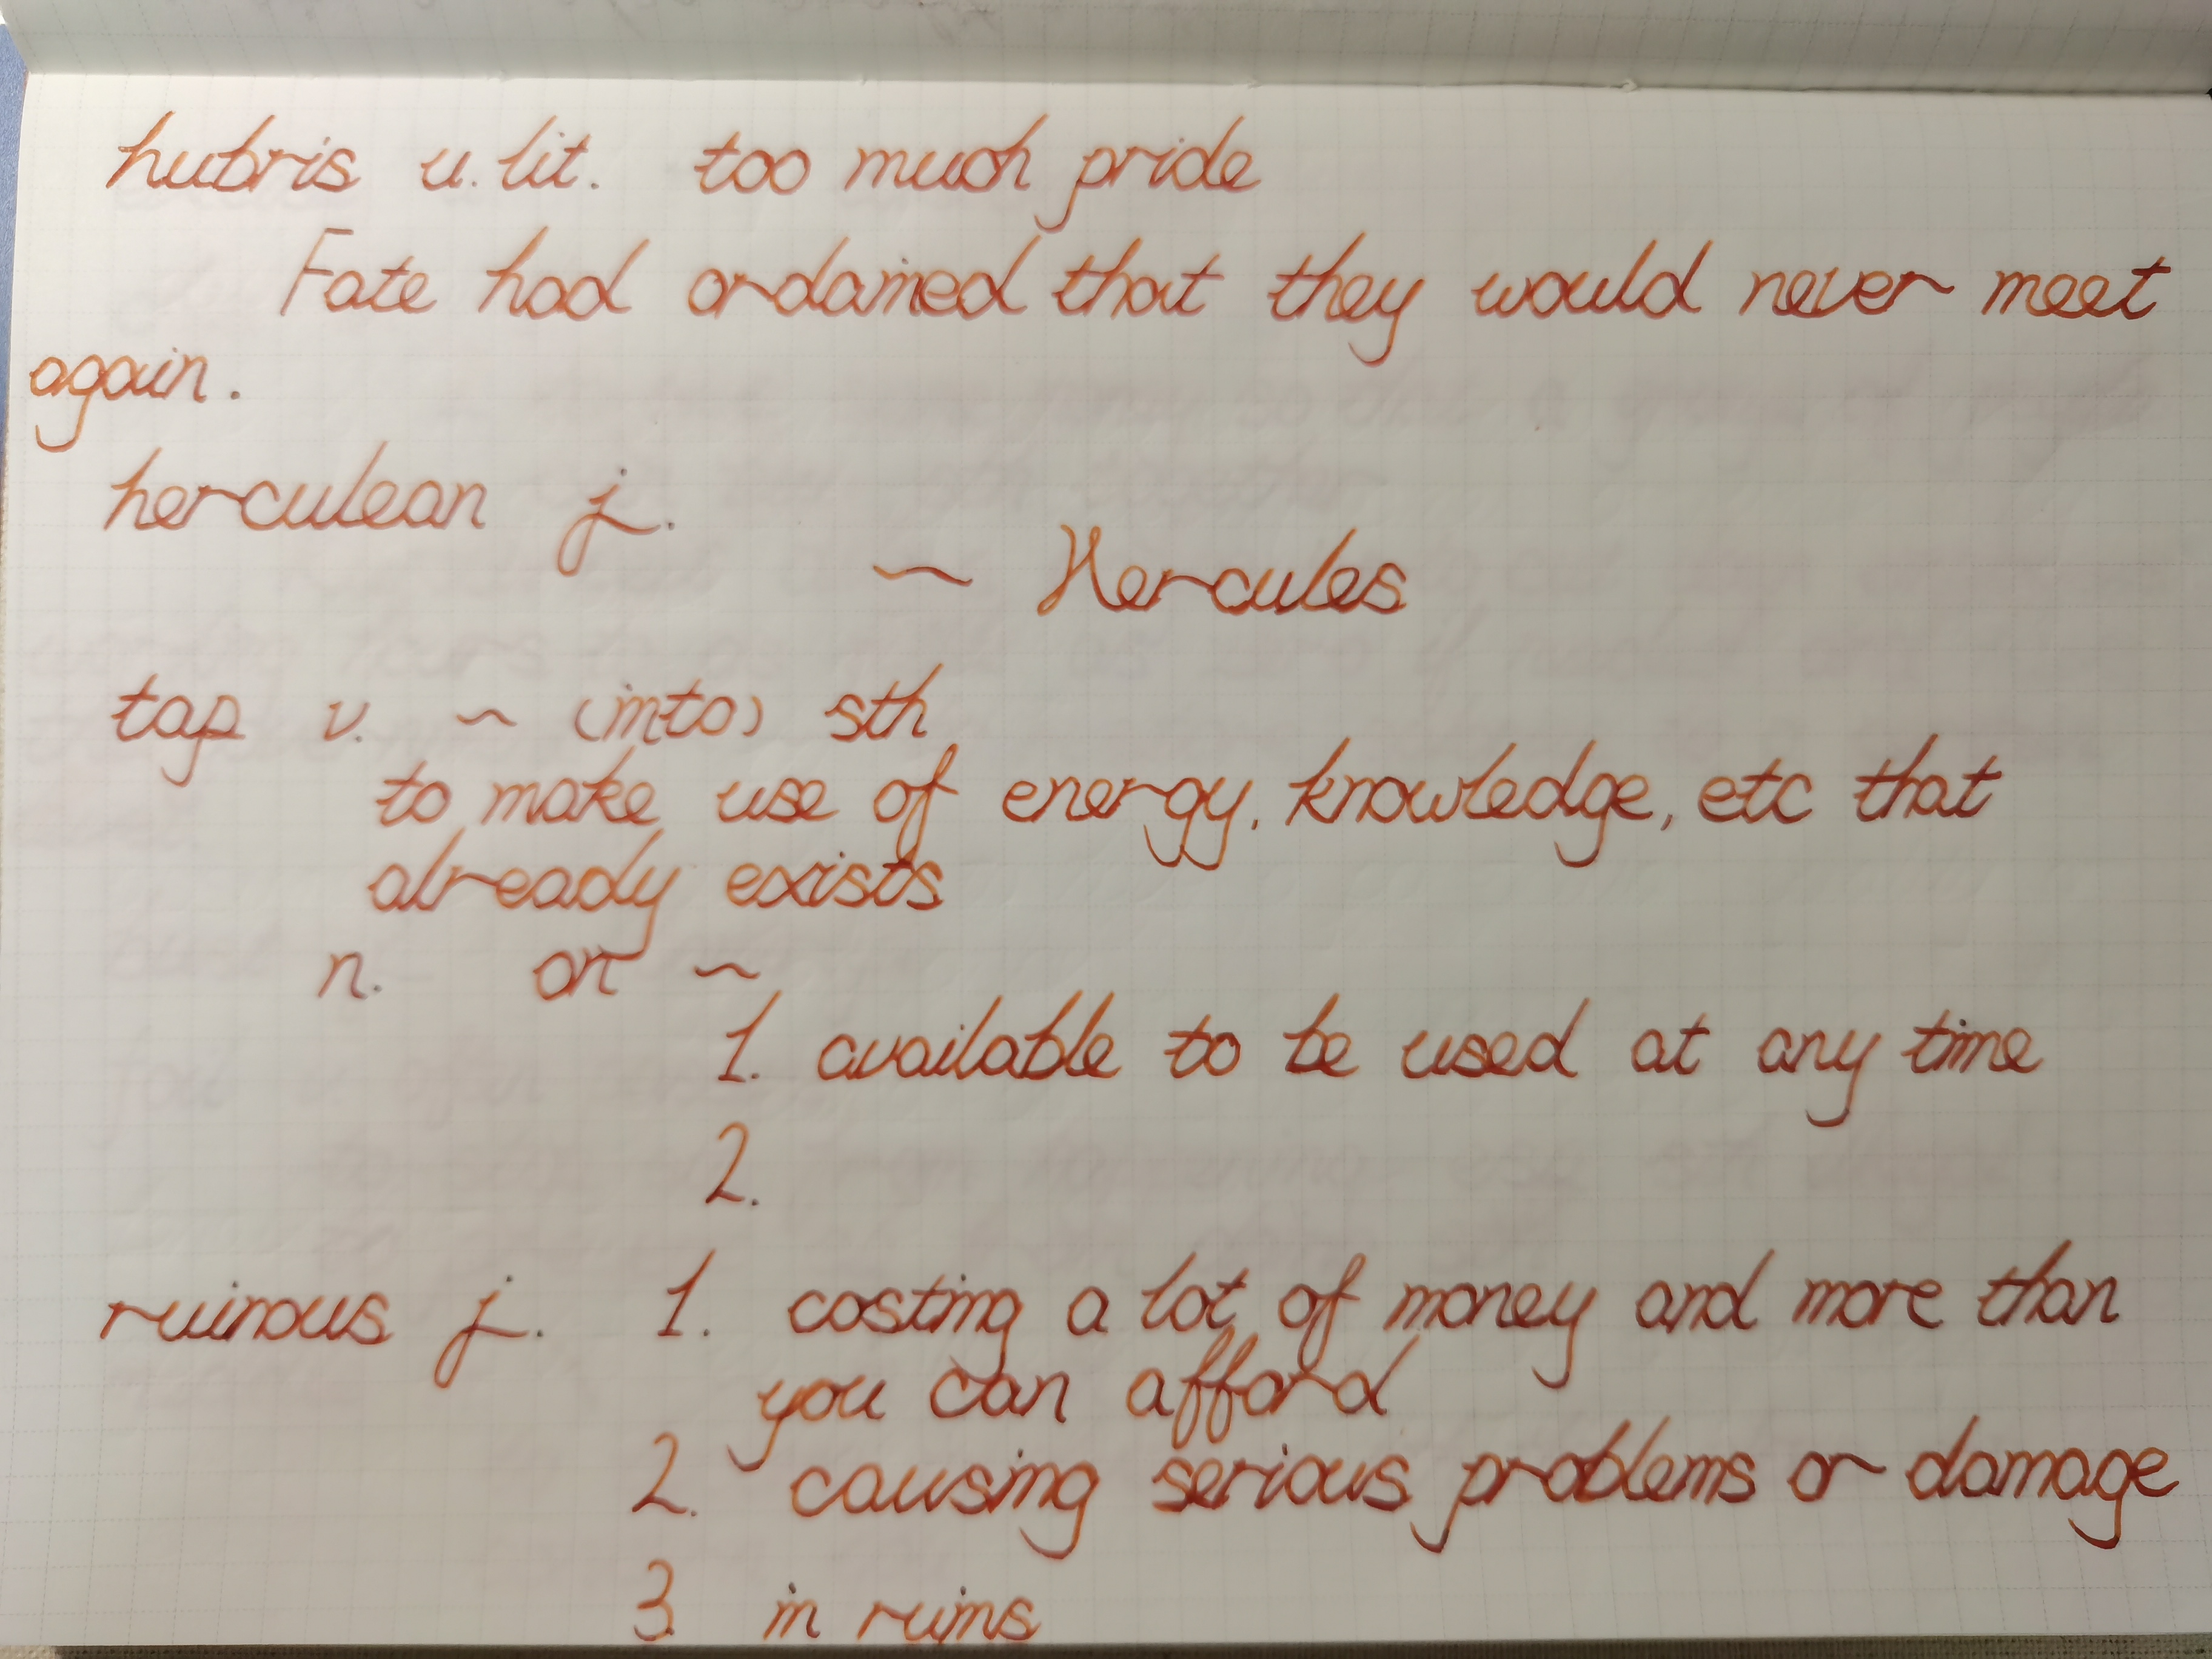 hubris u. lit. too much pride
Fate had ordained that they would never meet
again.
herculean j.
~ Hercules
tap v. ~ (into) sth
to make use of energy, knowledge, etc that
already exists
n. on ~
1. available to be used at any time
2.
ruinous j. 1. costing a lot of money and more than
you can afford
2. causing serious problems or damage
3. in ruins